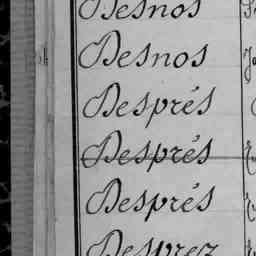 Desnos
Desnos
Després
Després
Després
Desprez